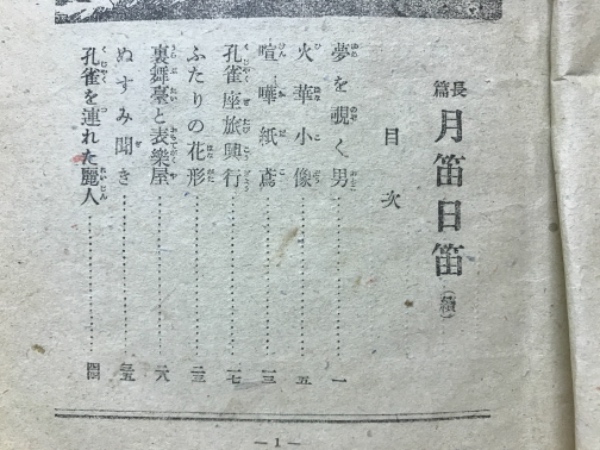 長篇 月笛日笛 (續)
目次
夢を覗く男………一
火華小像………五
喧嘩紙鳶………一三
孔雀座旅興行………一七
ふたりの花形………二三
裏舞臺と表樂屋………二八
ぬすみ聞き………三五
孔雀を連れた麗人………
—1—